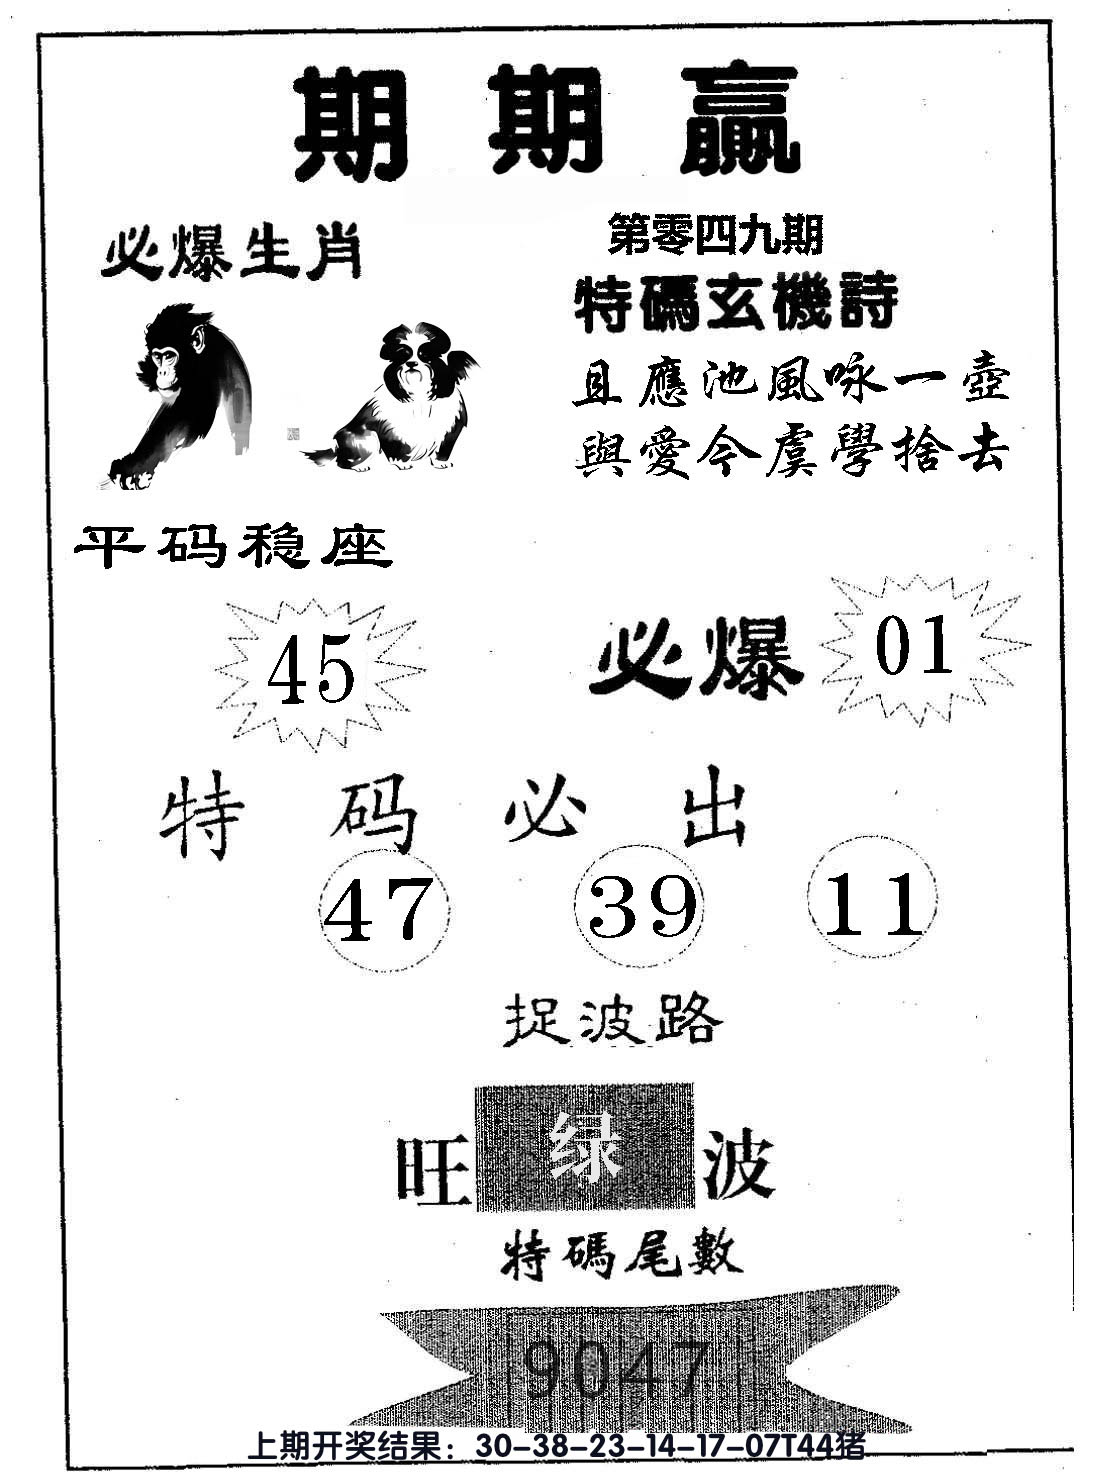 期期贏
必爆生肖
第零四九期
特碼玄機詩
且應池風咏一壺
與愛今虞學捨去
平码稳座
45
必爆 01
特码必出
47 39 11
捉波路
旺绿波
特碼尾數
9047
上期开奖结果：30-38-23-14-17-07T44猪